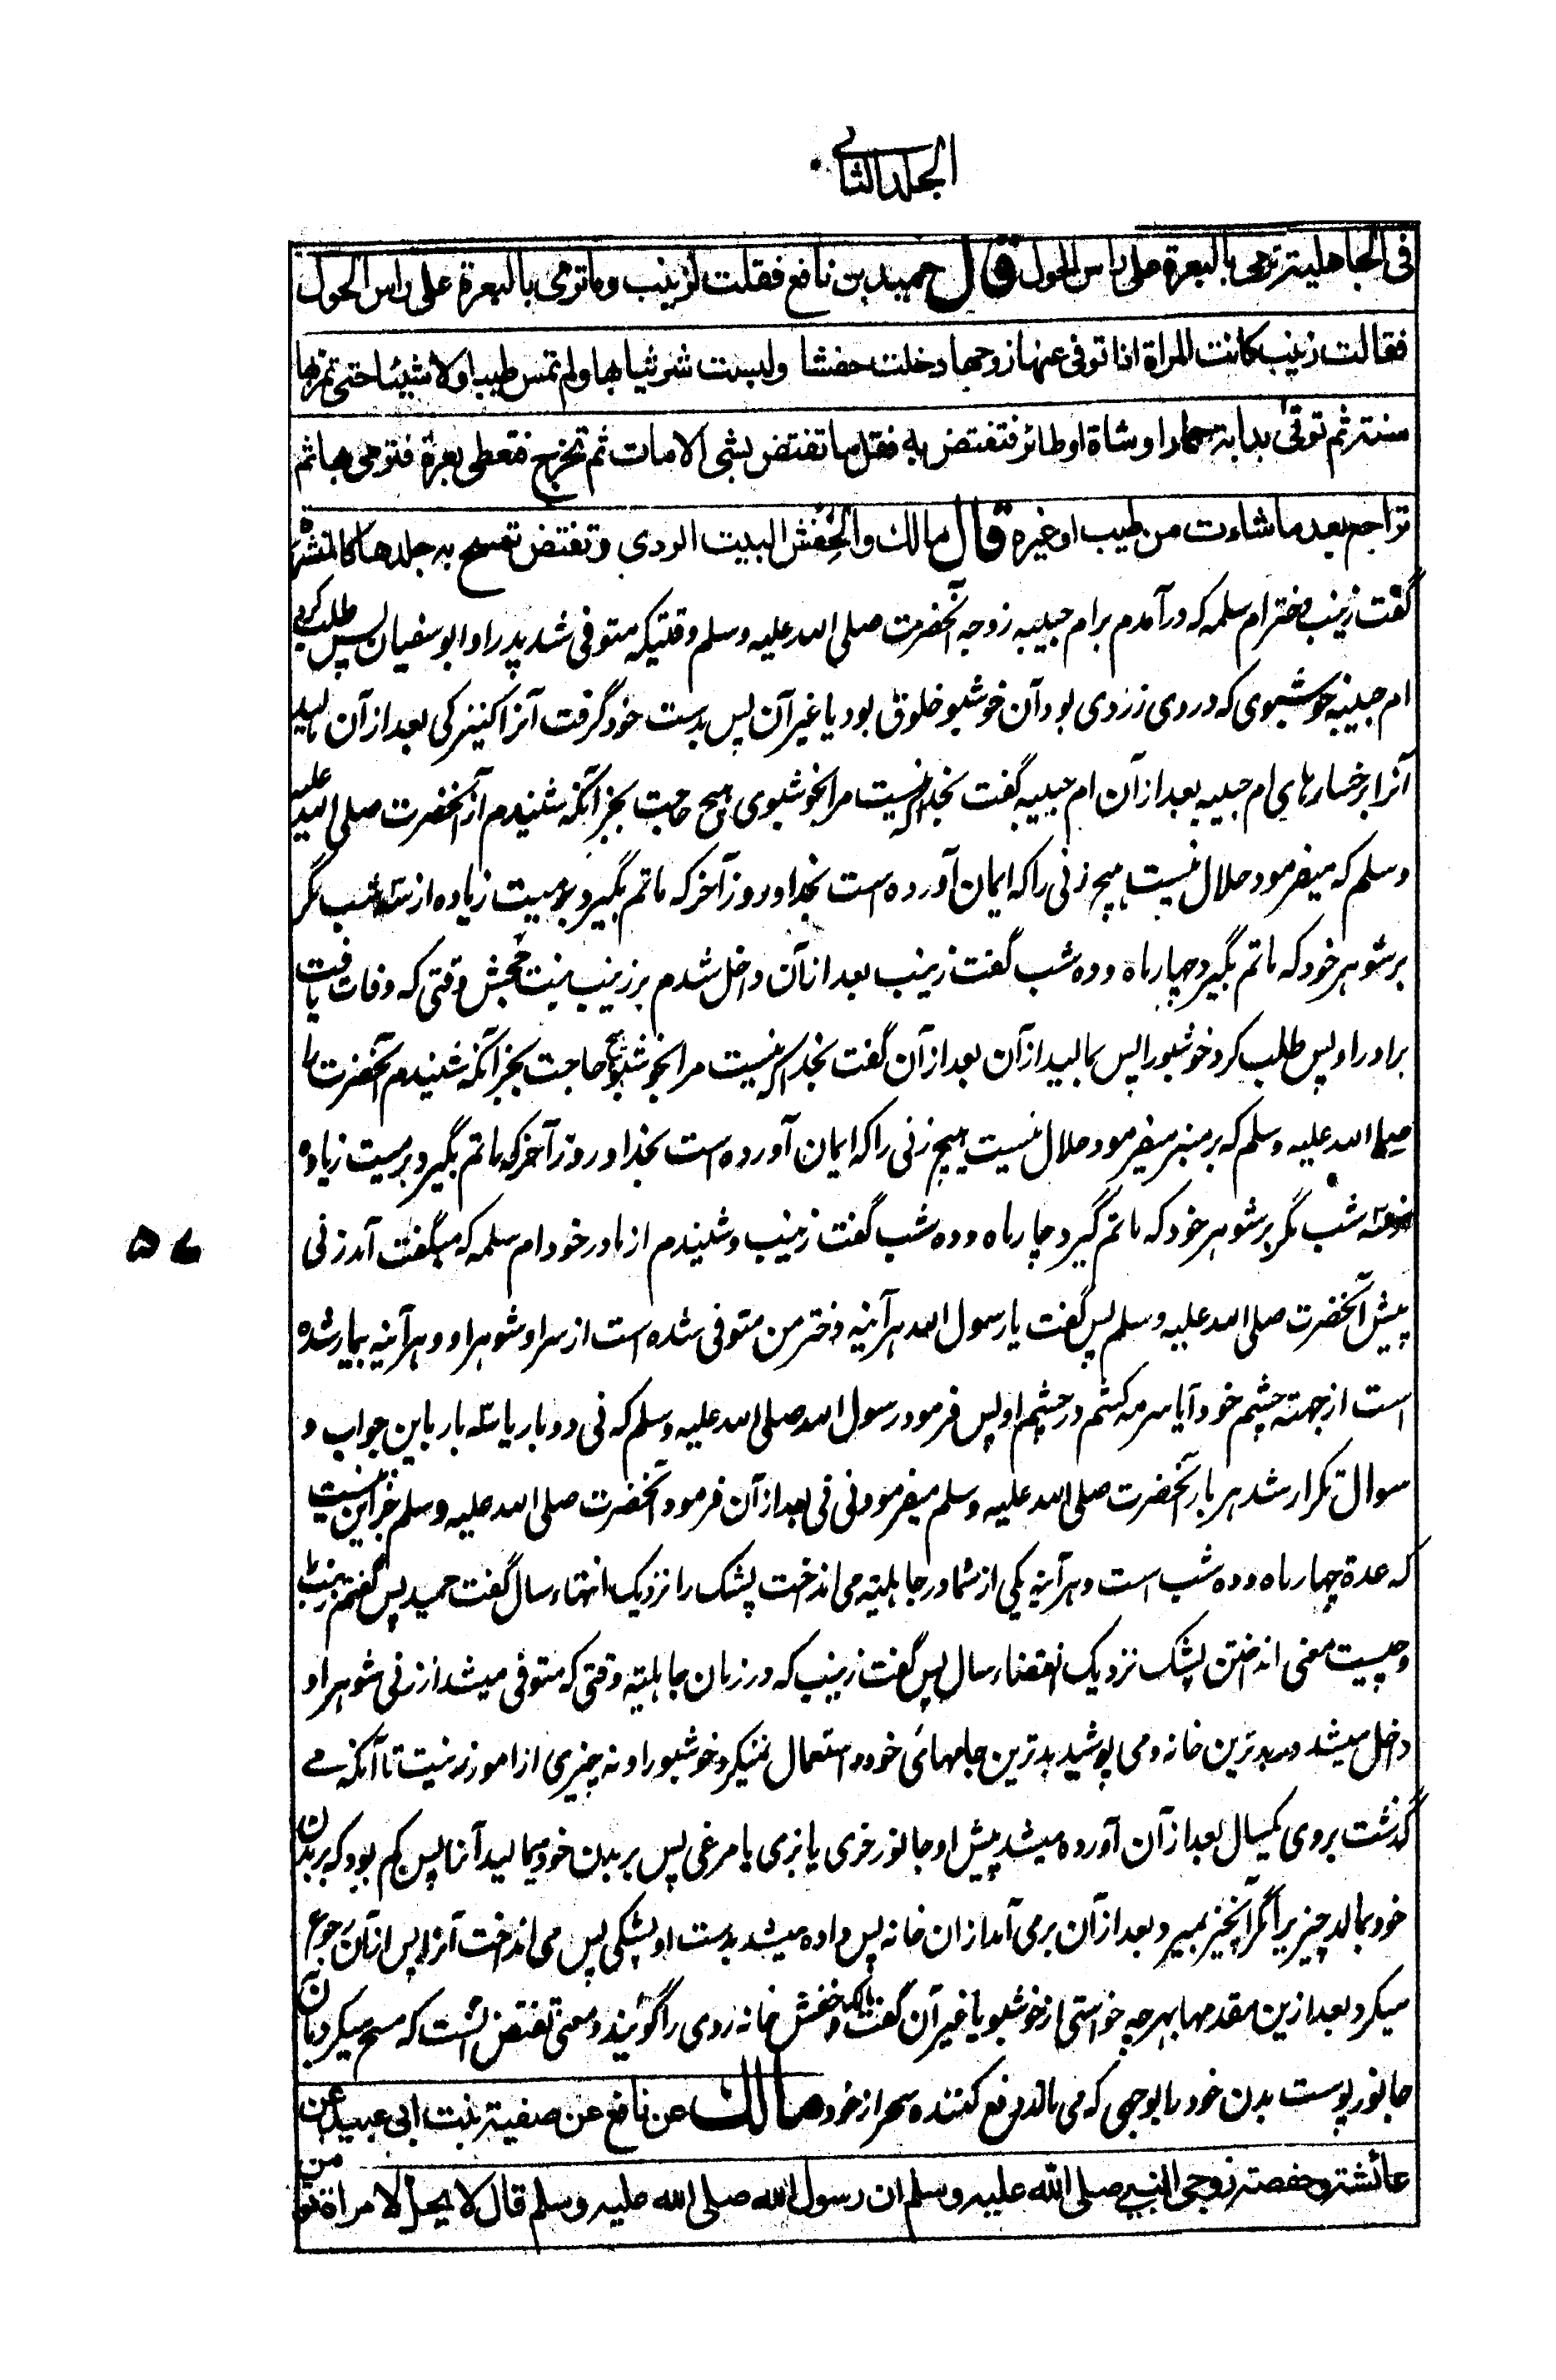 الجلد الثانی
فی الجاهلیة ترمی بالبعرة علی راس الحول قال حمید بن نافع فقلت لزینب وما ترمی بالبعرة علی راس الحول
فقالت زینب کانت المراة اذا توفی عنها زوجها دخلت حفشا ولبست شر ثیابها ولم تمس طیبا ولا شیئا حتی تمر بها
سنة ثم توتی بدابة حمار او شاة او طائر فتفتض به فقل ما تفتض بشی الا مات ثم تخرج فتعطی بعرة فترمی بها ثم
تراجع بعد ما شاءت من طیب او غیره قال مالک والحفش البیت الردی وتفتض تمسح به جلدها کالنشرة
گفت زینب دختر ام سلمه که در آمدم بر ام حبیبه زوجه آنحضرت صلی الله علیه وسلم وقتیکه متوفی شد پدر او ابو سفیان پس طلب کرد
ام حبیبه خوشبوی که در وی زردی بود آن خوشبو خلوق بود یا غیر آن پس بدست خود گرفت آنرا کنیزکی بعد از آن مالید
آنرا بر خسارهای ام حبیبه بعد از آن ام حبیبه گفت بخدا که نیست مرا بخوشبوی هیچ حاجت بجز آنکه شنیدم از آنحضرت صلی الله علیه
وسلم که میفرمود حلال نیست هیچ زنی را که ایمان آورده است بخدا و روز آخر که ماتم بگیرد بر میت زیاده از سه شب مگر
بر شوهر خود که ماتم بگیرد چهار ماه و ده شب گفت زینب بعد از آن داخل شدم بر زینب بنت جحش وقتی که وفات یافت
برادر او پس طلب کرد خوشبو را پس بمالید از آن بعد از آن گفت بخدا که نیست مرا بخوشبو هیچ حاجت بجز آنکه شنیدم آنحضرت را
صلی الله علیه وسلم که بر منبر میفرمود حلال نیست هیچ زنی را که ایمان آورده است بخدا و روز آخر که ماتم بگیرد بر میت زیاده
از سه شب مگر بر شوهر خود که ماتم گیرد چار ماه و ده شب گفت زینب و شنیدم از مادر خود ام سلمه که میگفت آمد زنی
پیش آنحضرت صلی الله علیه وسلم پس گفت یا رسول الله هر آئینه دختر من متوفی شده است از سر او شوهر او و هر آئینه بیمار شده
است از جهته چشم خود آیا سرمه کشم در چشم او پس فرمود رسول الله صلی الله علیه وسلم که نی دو بار یا سه بار باین جواب و
سوال تکرار شد هر بار آنحضرت صلی الله علیه وسلم میفرمود نی نی بعد از آن فرمود آنحضرت صلی الله علیه وسلم جز این نیست
که عدة چهار ماه و ده شب است و هر آئینه یکی از شما در جاهلیته می انداخت پشک را نزدیک انتهاء سال گفت حمید پس گفتم بزینب
و چیست معنی انداختن پشک نزدیک انقضاء سال پس گفت زینب که در زمان جاهلیته وقتی که متوفی میشد از زنی شوهر او
داخل میشد در بدترین خانه و می پوشید بدترین جامهائ خود و استعمال نمیکرد خوشبو را و نه چیزی از امور زینت تا آنکه می
گذشت بر وی یکسال بعد از آن آورده میشد پیش او جانور خری یا بزی یا مرغی پس بر بدن خود میمالید آنرا پس کم بود که بر بدن
خود بمالد چیزی را مگر آنچیز بمیرد بعد از آن بر می آمد از ان خانه پس داده میشد بدست او پشکی پس می انداخت آنرا پس از آن رجوع
میکرد بعد از ین مقدمها بهرچه خواستی از خوشبو یا غیر آن گفت مالک و حفش خانه ردی را گویند و معنی تفتض آنست که مسح میکرد بآن
جانور پوست بدن خود را بوجهی که می ماند دفع کننده سحر از خود مالک عن نافع عن صفیة بنت ابی عبید عن
عائشة وحفصة زوجی النبی صلی الله علیه وسلم ان رسول الله صلی الله علیه وسلم قال لا یحل لامراة تومن
۵۷